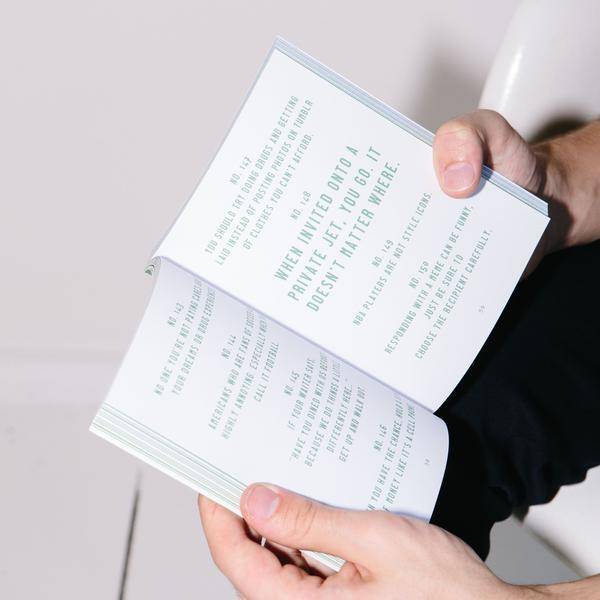 NO. 143
NO ONE YOU'RE NOT PAYING
YOUR DREAMS OR DRUG
NO. 144
AMERICANS WHO ARE FANS OF
HIGHLY ANNOYING. ESPECIALLY WHEN
CALL IT FOOTBALL.
NO. 145
IF YOUR WAITER SAYS,
"HAVE YOU DINED WITH US BEFORE
BECAUSE WE DO THINGS A LITTLE
DIFFERENTLY HERE..."
GET UP AND WALK OUT.
NO. 146
YOU HAVE THE CHANCE,
MONEY LIKE IT'S A CELL
NO. 147
YOU SHOULD TRY DOING DRUGS AND GETTING
LAID INSTEAD OF POSTING PHOTOS ON TUMBLR
OF CLOTHES YOU CAN'T AFFORD.
NO. 148
WHEN INVITED ONTO A
PRIVATE JET, YOU GO. IT
DOESN'T MATTER WHERE.
NO. 149
NBA PLAYERS ARE NOT STYLE ICONS.
NO. 150
RESPONDING WITH A MEME CAN BE FUNNY,
JUST BE SURE TO
CHOOSE THE RECIPIENT CAREFULLY.